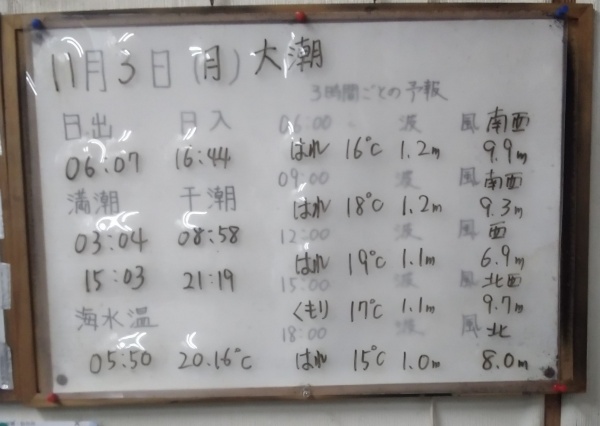 11月3日(月)大潮
3時間ごとの予報
日出 日入 06:00 波 風 南西
06:07 16:44 はれ 16℃ 1.2m 9.9m
09:00 波 風 南西
満潮 干潮 はれ 18℃ 1.2m 9.3m
12:00 波 風 西
03:04 08:58 はれ 19℃ 1.1m 6.9m
15:03 21:19 15:00 波 風 北西
海水温 くもり 17℃ 1.1m 9.7m
18:00 波 風 北
05:50 20.16℃ はれ 15℃ 1.0m 8.0m